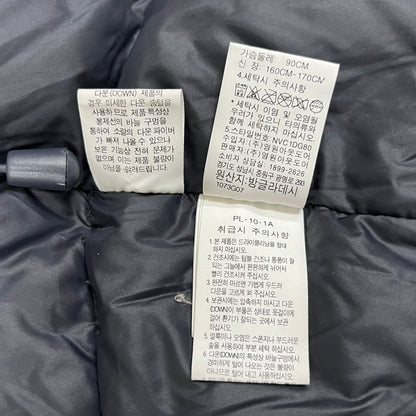 다운(DOWN) 제품의
경우 미세한 다운 솜털을
사용하므로 제품특성상
봉제선의 바늘 구멍을
통하여 소량의 다운 파이버
가 빠져 나올 수 있으나
보온 기능상 전혀 문제가
없으며 이는 제품 불량이
아님을 알려드립니다.
가슴둘레: 90CM
신 장: 160CM~170CM
4.세탁시 주의사항
우려가 있으니 타의류와
함께 세탁하지 마십시오.
5.스타일번호: NVC1DG80
판매원: (주)영원아웃도어
수입자: (주)영원아웃도어
소비자 상담실: 1899-2626
경기도 성남시 중원구 광명로 290
원산지:방글라데시
1073G07
PL-10-1A
취급시 주의사항
1. 본 제품은 드라이클리닝을 절대
하지 마십시오.
2. 건조시에는 텀블 건조나 통풍이 잘
되는 그늘에서 편편하게 뉘어서
빨리 건조시켜 주십시오.
3. 완전히 마르면 가볍게 두드려
다운을 고르게 펴 주십시오.
4. 보관시에는 압축하지 마시고 다운
(DOWN)이 부풀은 상태로 옷걸이에
걸어 환기가 잘되는 곳에서 보관
하십시오.
5. 얼룩이나 오염은 스폰지나 부드러운
솔을 사용하여 부분 세탁 하십시오.
6. 다운(DOWN)의 특성상 바늘구멍에서